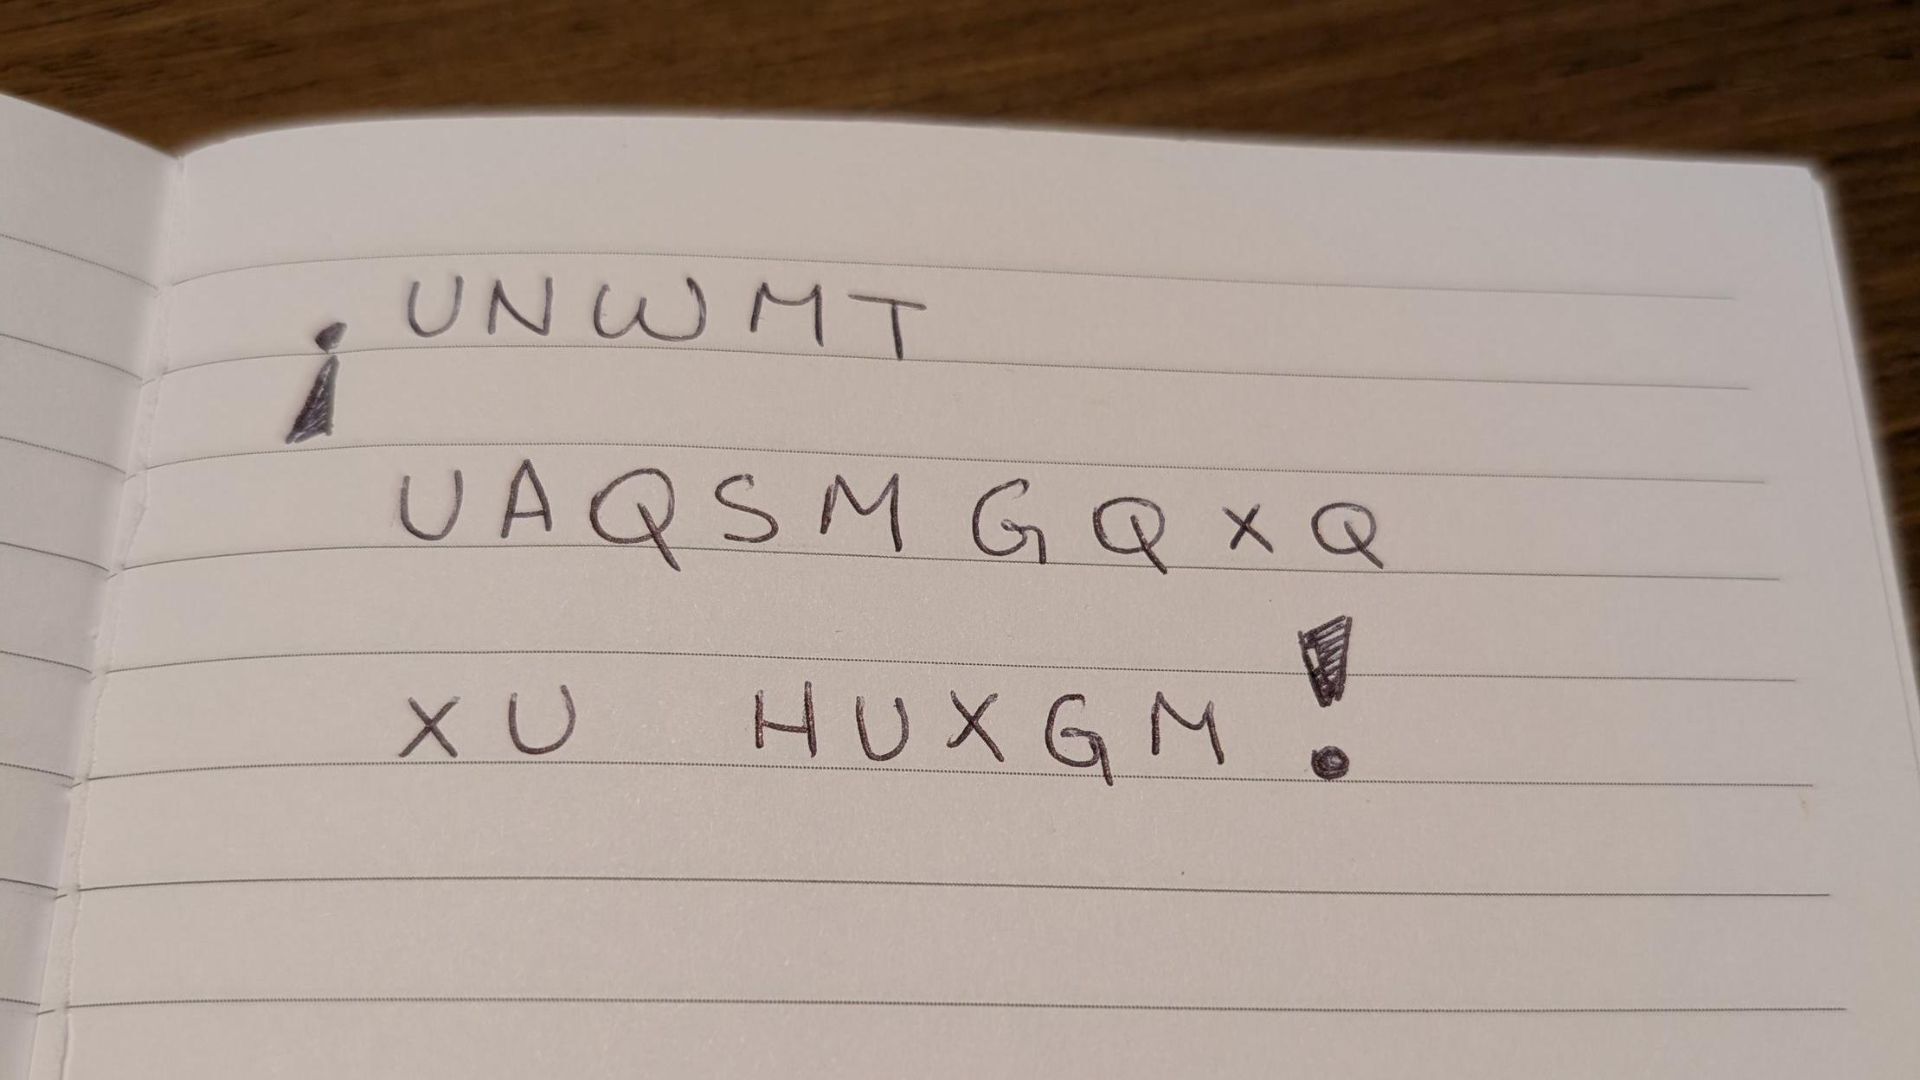 ¡UNWMT
UAQSMGQXQ
XU HUXGM!